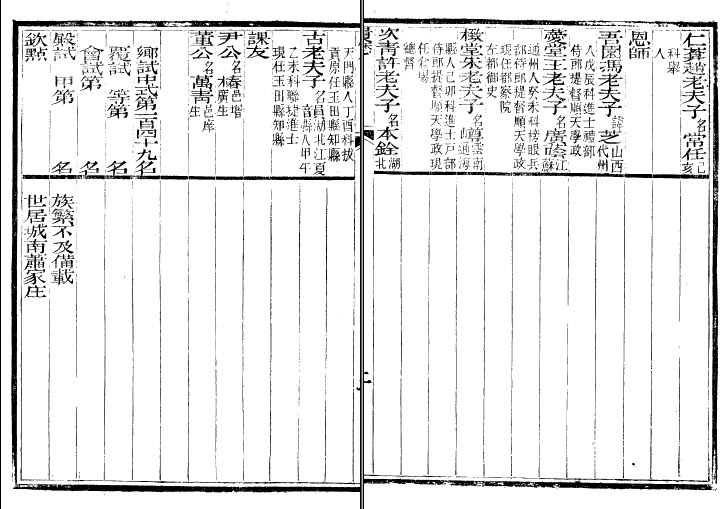 仁菴趙老夫子名常任己亥
科舉
人
恩師
吾園馮老夫子諱芝山西代州
人戊辰科進士禮部
侍郎提督順天學政
藹堂王老夫子名廣蔭江蘇
通州人癸未科榜眼兵
部侍郎提督順天學政
現任都察院
左都御史
樾堂朱老夫子名嶟雲南通海
縣人己卯科進士戶部
侍郎提督順天學政現
任倉場
總督
次青許老夫子名本銓湖北
天門縣人丁酉科拔
貢原任玉田縣知縣
古老夫子名員湖北江夏縣人甲午
乙未科聯捷進士
現任玉田縣知縣
課友
尹公名椿邑增廣生
董公名萬青邑庠生
鄉試中式第二百四十九名
覆試 等第 名
會試第 名
殿試 甲第 名
欽點
族繁不及備載
世居城南蕭家庄